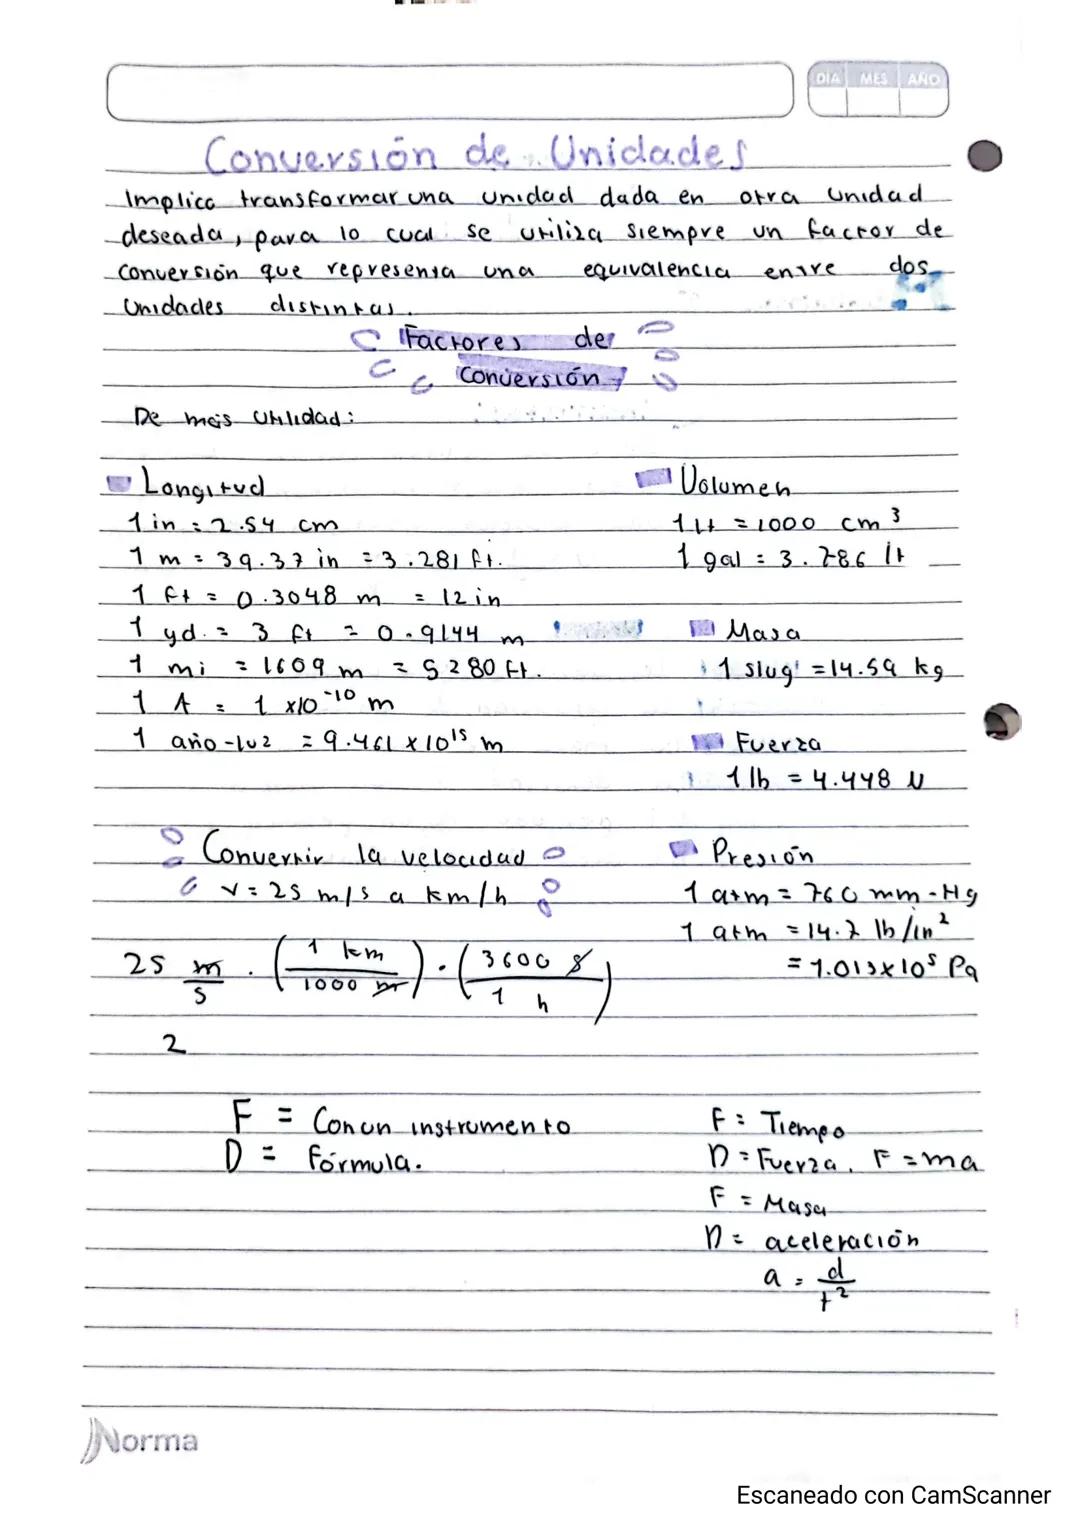 DIA MES AÑO
Conversión de Unidades
Implica transformar una unidad dada en otra unidad
deseada, para lo cual se utiliza siempre un factor de
conversión que representa una equivalencia entre dos
unidades distintas.
Factores de
Conversión
De más utilidad:
Longitud
1 in = 2.54 cm
1 m = 39.37 in = 3.281 ft.
1 ft = 0.3048 m = 12 in
1 yd. = 3 ft = 0.9144 m
1 mi = 1609 m = 5280 ft.
1 A = 1 x10⁻¹⁰ m
1 año-luz = 9.461 x 10¹⁵ m
Volumen
1 lt = 1000 cm³
1 gal = 3.786 lt
Masa
1 slug = 14.59 kg
Fuerza
1 lb = 4.448 N
Presión
1 atm = 760 mm-Hg
1 atm = 14.7 lb/in²
= 1.013x10⁵ Pa
Convertir la velocidad
V = 25 m/s a km/h
25 m/s · (1 km / 1000 m) · (3600 s / 1 h)
2
F = Con un instrumento
D = fórmula.
F = Tiempo
D = Fuerza. F = ma
F = Masa
D = aceleración
a = d/t²
Norma
Escaneado con CamScanner